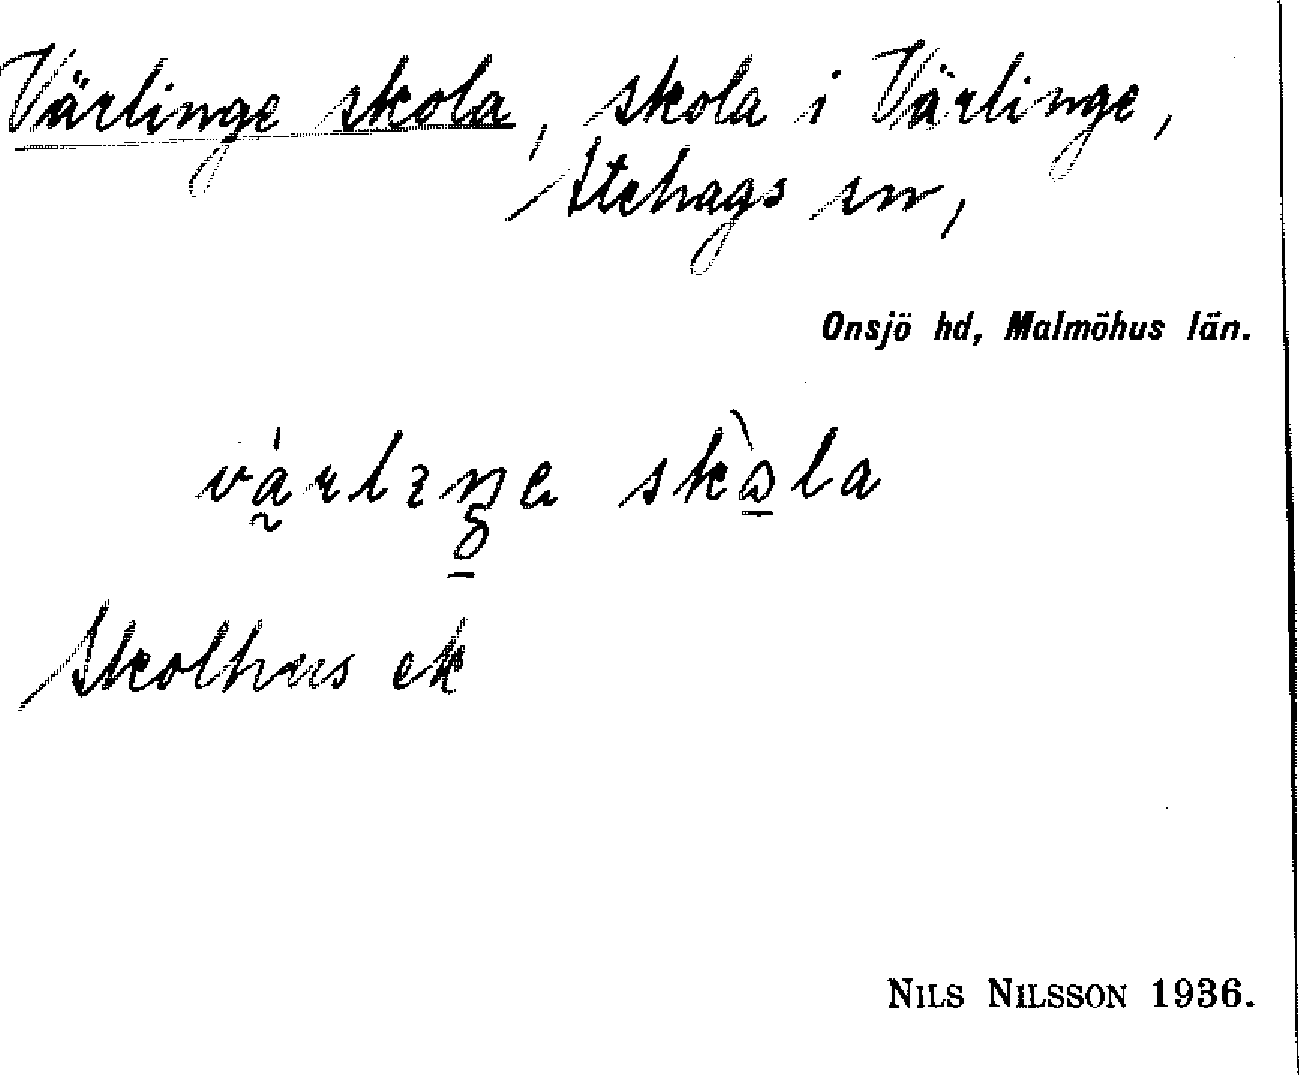 Värlinge skola, skola i Värlinge,
Stehags sn,
Onsjö hd, Malmöhus län.
skola
Skolhus ek
NILS NILSSON 1936.